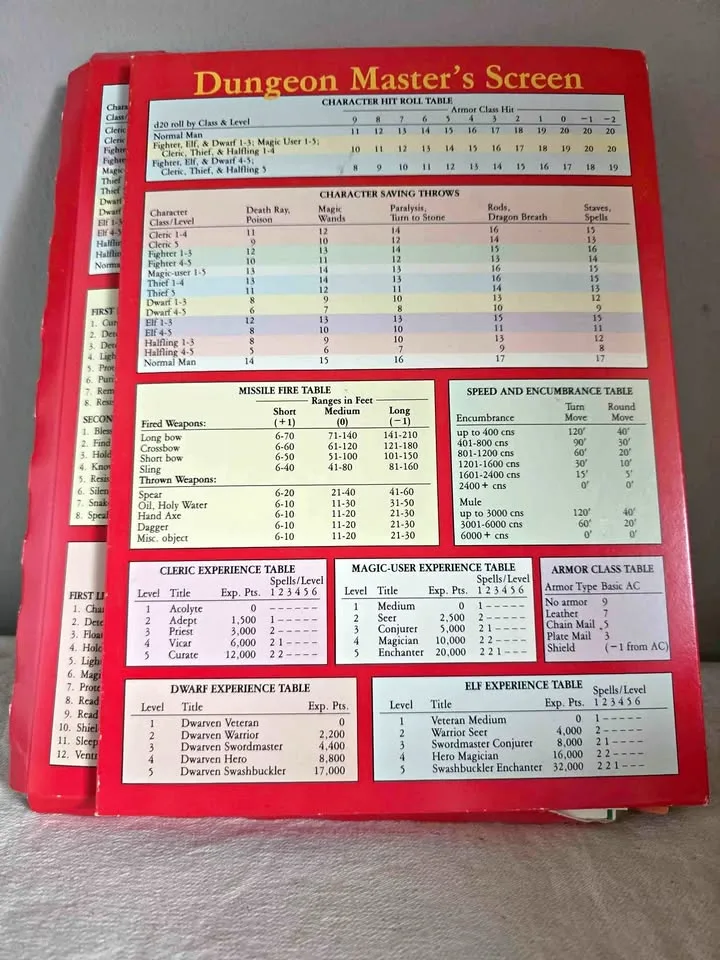 Dungeon Master's Screen
CHARACTER HIT ROLL TABLE
Armor Class Hit
d20 roll by Class & Level 9 8 7 6 5 4 3 2 1 0 -1 -2
Normal Man 11 12 13 14 15 16 17 18 19 20 20 20
Fighter, Elf, & Dwarf 1-3; Magic User 1-5;
Cleric, Thief, & Halfling 1-4 10 11 12 13 14 15 16 17 18 19 20 20
Fighter, Elf, & Dwarf 4-5;
Cleric, Thief, & Halfling 5 8 9 10 11 12 13 14 15 16 17 18 19
CHARACTER SAVING THROWS
Character Death Ray, Magic Paralysis, Rods, Staves,
Class/Level Poison Wands Turn to Stone Dragon Breath Spells
Cleric 1-4 11 12 14 16 15
Cleric 5 9 10 12 14 13
Fighter 1-3 12 13 14 15 16
Fighter 4-5 10 11 12 13 14
Magic-user 1-5 13 14 13 16 15
Thief 1-4 13 14 13 16 15
Thief 5 11 12 11 14 13
Dwarf 1-3 8 9 10 13 12
Dwarf 4-5 6 7 8 10 9
Elf 1-3 12 13 13 15 15
Elf 4-5 8 10 10 11 11
Halfling 1-3 8 9 10 13 12
Halfling 4-5 5 6 7 9 8
Normal Man 14 15 16 17 17
MISSILE FIRE TABLE
Ranges in Feet
Short Medium Long
Fired Weapons: (+1) (0) (-1)
Long bow 6-70 71-140 141-210
Crossbow 6-60 61-120 121-180
Short bow 6-50 51-100 101-150
Sling 6-40 41-80 81-160
Thrown Weapons:
Spear 6-20 21-40 41-60
Oil, Holy Water 6-10 11-30 31-50
Hand Axe 6-10 11-20 21-30
Dagger 6-10 11-20 21-30
Misc. object 6-10 11-20 21-30
SPEED AND ENCUMBRANCE TABLE
Turn Round
Encumbrance Move Move
up to 400 cns 120' 40'
401-800 cns 90' 30'
801-1200 cns 60' 20'
1201-1600 cns 30' 10'
1601-2400 cns 15' 5'
2400+ cns 0' 0'
Mule
up to 3000 cns 120' 40'
3001-6000 cns 60' 20'
6000+ cns 0' 0'
CLERIC EXPERIENCE TABLE
Spells/Level
Level Title Exp. Pts. 1 2 3 4 5 6
1 Acolyte 0 - - - - - -
2 Adept 1,500 1 - - - - -
3 Priest 3,000 2 - - - - -
4 Vicar 6,000 2 1 - - - -
5 Curate 12,000 2 2 - - - -
MAGIC-USER EXPERIENCE TABLE
Spells/Level
Level Title Exp. Pts. 1 2 3 4 5 6
1 Medium 0 1 - - - - -
2 Seer 2,500 2 - - - - -
3 Conjurer 5,000 2 1 - - - -
4 Magician 10,000 2 2 - - - -
5 Enchanter 20,000 2 2 1 - - -
ARMOR CLASS TABLE
Armor Type Basic AC
No armor 9
Leather 7
Chain Mail 5
Plate Mail 3
Shield (-1 from AC)
DWARF EXPERIENCE TABLE
Level Title Exp. Pts.
1 Dwarven Veteran 0
2 Dwarven Warrior 2,200
3 Dwarven Swordmaster 4,400
4 Dwarven Hero 8,800
5 Dwarven Swashbuckler 17,000
ELF EXPERIENCE TABLE
Spells/Level
Level Title Exp. Pts. 1 2 3 4 5 6
1 Veteran Medium 0 1 - - - - -
2 Warrior Seer 4,000 2 - - - - -
3 Swordmaster Conjurer 8,000 2 1 - - - -
4 Hero Magician 16,000 2 2 - - - -
5 Swashbuckler Enchanter 32,000 2 2 1 - - -
Chara
Class/
Cleric
Cleric
Fighte
Fighte
Magic
Thief
Thief 5
Dwarf
Dwarf
Elf 1-3
Elf 4-5
Halflin
Halflin
Norma
FIRST
1. Cur
2. Dete
3. Dete
4. Ligh
5. Prot
6. Puri
7. Rem
8. Resi
SECON
1. Bless
2. Find
3. Hold
4. Know
5. Resis
6. Silen
7. Snak
8. Speal
FIRST LE
1. Char
2. Dete
3. Float
4. Hold
5. Light
6. Magi
7. Prote
8. Read
9. Read
10. Shiel
11. Sleep
12. Ventr